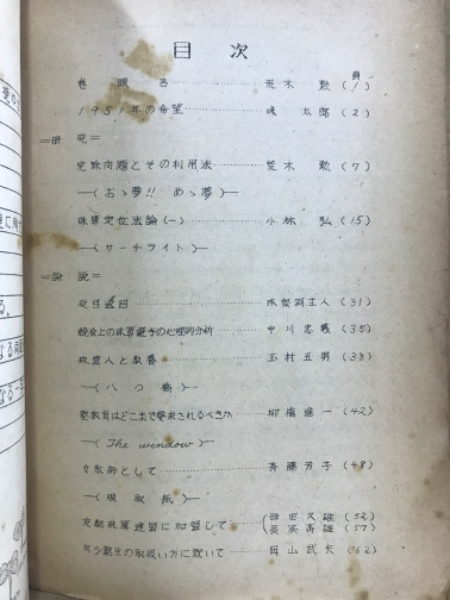 目次
巻頭言 荒木 勲 (1)
1951年の希望 太郎 (2)
=研究=
完除問題とその利用法 荒木 勲 (7)
―(おゝ夢!! めゝ夢)―
珠算定位法論(一) 小林 弘 (15)
―(サーチライト)―
=論説=
主人 (31)
競技上の珠算選手の心理的分析 中川忠義 (35)
珠算人と教養 玉村五男 (38)
―(八つ橋)―
塾教育はどこまで要求されるべきか 柳橋進一 (42)
―(The window)―
女教師として 斉藤芳子 (48)
―(吸取紙)―
京都珠算連盟に加盟して 西田久雄 (52)
長浜 雄 (57)
塾生の取扱い方に就いて 山武夫 (62)